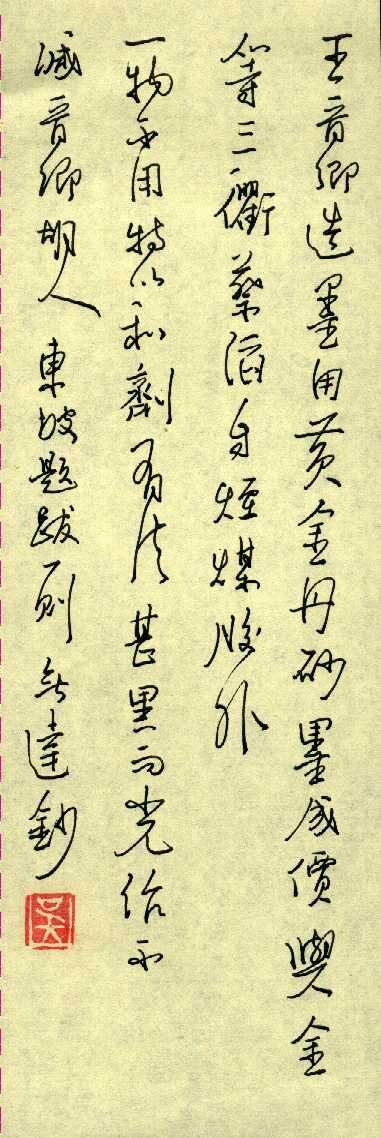 王晉卿造墨用黃金丹砂墨成價與金
等三衢蔡滔自煙煤膠外
一物不用特以和劑有法甚黑而光殆不
減晉卿胡人 東坡題跋一則 達鈔
吳